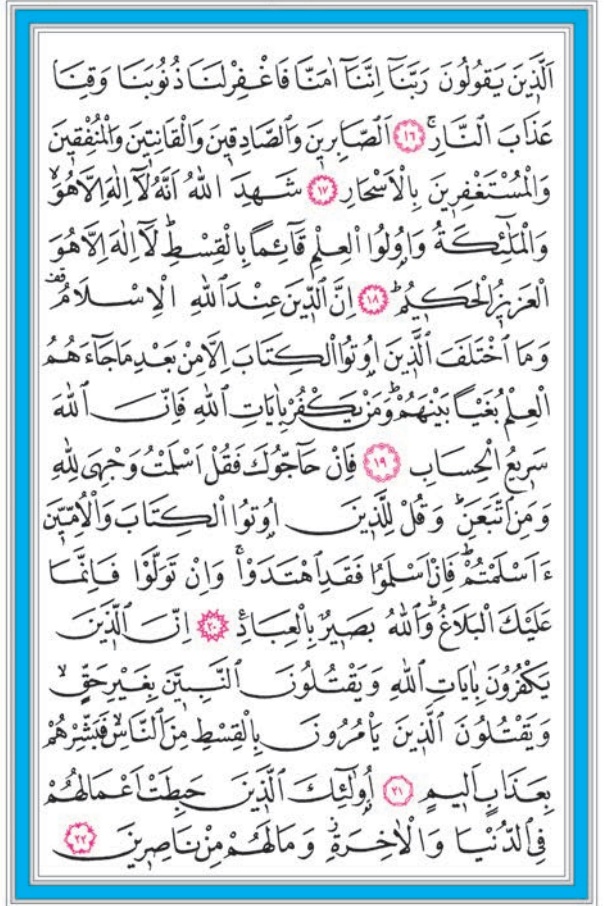 اَلَّذ۪ينَ يَقُولُونَ رَبَّنَٓا اِنَّنَٓا اٰمَنَّا فَاغْفِرْ لَنَا ذُنُوبَنَا وَقِنَا
عَذَابَ النَّارِۚ ﴿١٦﴾ اَلصَّابِر۪ينَ وَالصَّادِق۪ينَ وَالْقَانِت۪ينَ وَالْمُنْفِق۪ينَ
وَالْمُسْتَغْفِر۪ينَ بِالْاَسْحَارِ ﴿١٧﴾ شَهِدَ اللّٰهُ اَنَّهُ لَٓا اِلٰهَ اِلَّا هُوَۙ
وَالْمَلٰٓئِكَةُ وَاُو۬لُوا الْعِلْمِ قَٓائِمًا بِالْقِسْطِۜ لَٓا اِلٰهَ اِلَّا هُوَ
الْعَز۪يزُ الْحَك۪يمُۜ ﴿١٨﴾ اِنَّ الدّ۪ينَ عِنْدَ اللّٰهِ الْاِسْلَامُ۠
وَمَا اخْتَلَفَ الَّذ۪ينَ اُو۫تُوا الْكِتَابَ اِلَّا مِنْ بَعْدِ مَا جَٓاءَهُمُ
الْعِلْمُ بَغْيًا بَيْنَهُمْۜ وَمَنْ يَكْفُرْ بِاٰيَاتِ اللّٰهِ فَاِنَّ اللّٰهَ
سَر۪يعُ الْحِسَابِ ﴿١٩﴾ فَاِنْ حَٓاجُّوكَ فَقُلْ اَسْلَمْتُ وَجْهِيَ لِلّٰهِ
وَمَنِ اتَّبَعَنِۜ وَقُلْ لِلَّذ۪ينَ اُو۫تُوا الْكِتَابَ وَالْاُمِّيّ۪نَ
ءَاَسْلَمْتُمْۜ فَاِنْ اَسْلَمُوا فَقَدِ اهْتَدَوْاۚ وَاِنْ تَوَلَّوْا فَاِنَّمَا
عَلَيْكَ الْبَلَاغُۜ وَاللّٰهُ بَص۪يرٌ بِالْعِبَادِ۟ ﴿٢٠﴾ اِنَّ الَّذ۪ينَ
يَكْفُرُونَ بِاٰيَاتِ اللّٰهِ وَيَقْتُلُونَ النَّبِيّ۪نَ بِغَيْرِ حَقٍّۙ
وَيَقْتُلُونَ الَّذ۪ينَ يَأْمُرُونَ بِالْقِسْطِ مِنَ النَّاسِۙ فَبَشِّرْهُمْ
بِعَذَابٍ اَل۪يمٍ ﴿٢١﴾ اُو۬لٰٓئِكَ الَّذ۪ينَ حَبِطَتْ اَعْمَالُهُمْ
فِي الدُّنْيَا وَالْاٰخِرَةِۘ وَمَا لَهُمْ مِنْ نَاصِر۪ينَ ﴿٢٢﴾